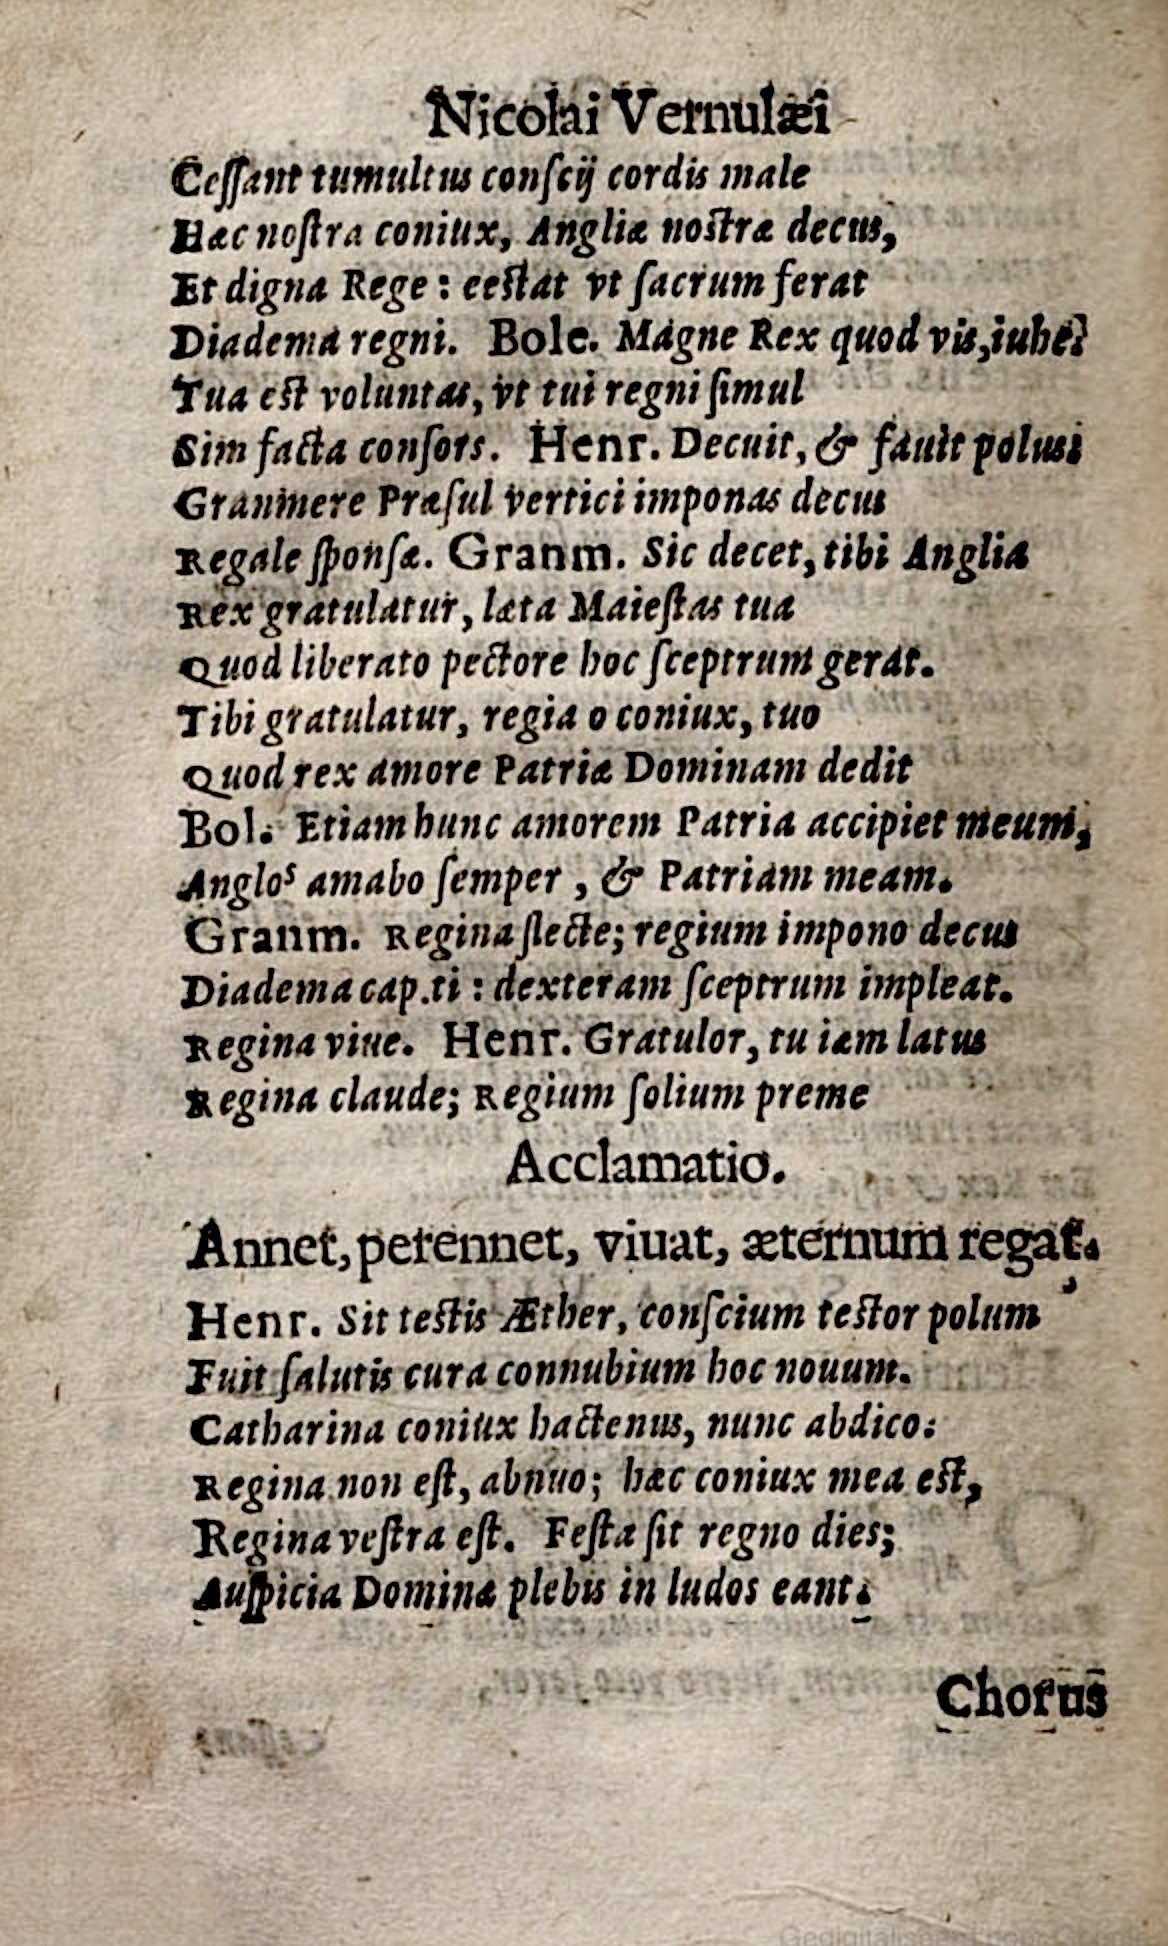 Nicolai Vernulæi
Ceſſant tumultus conſcij cordis male
Hæc noſtra coniux, Angliæ noſtræ decus,
Et digna Rege : eeſtat vt ſacrum ferat
Diadema regni. Bole. Magne Rex quod vis, iube?
Tua eſt voluntas, vt tui regni ſimul
Sim facta conſors. Henr. Decuit, & fauit polus:
Granmere Præſul vertici imponas decus
Regale ſponſæ. Granm. Sic decet, tibi Anglia
Rex gratulatur, læta Maieſtas tua
Quod liberato pectore hoc ſceptrum gerat.
Tibi gratulatur, regia o coniux, tuo
Quod rex amore Patriæ Dominam dedit
Bol. Etiam hunc amorem Patria accipiet meum,
Anglos amabo ſemper, & Patriam meam.
Granm. Regina flecte; regium impono decus
Diadema cap.ti : dexteram ſceptrum impleat.
Regina viue. Henr. Gratulor, tu iam latus
Regina claude; Regium ſolium preme
Acclamatio.
Annet, perennet, viuat, æternum regat.
Henr. Sit teſtis Æther, conſcium teſtor polum
Fuit ſalutis cura connubium hoc nouum.
Catharina coniux hactenus, nunc abdico:
Regina non eſt, abnuo; hæc coniux mea eſt,
Regina veſtra eſt. Feſta ſit regno dies;
Auſpicia Dominæ plebis in ludos eant.
Chorus